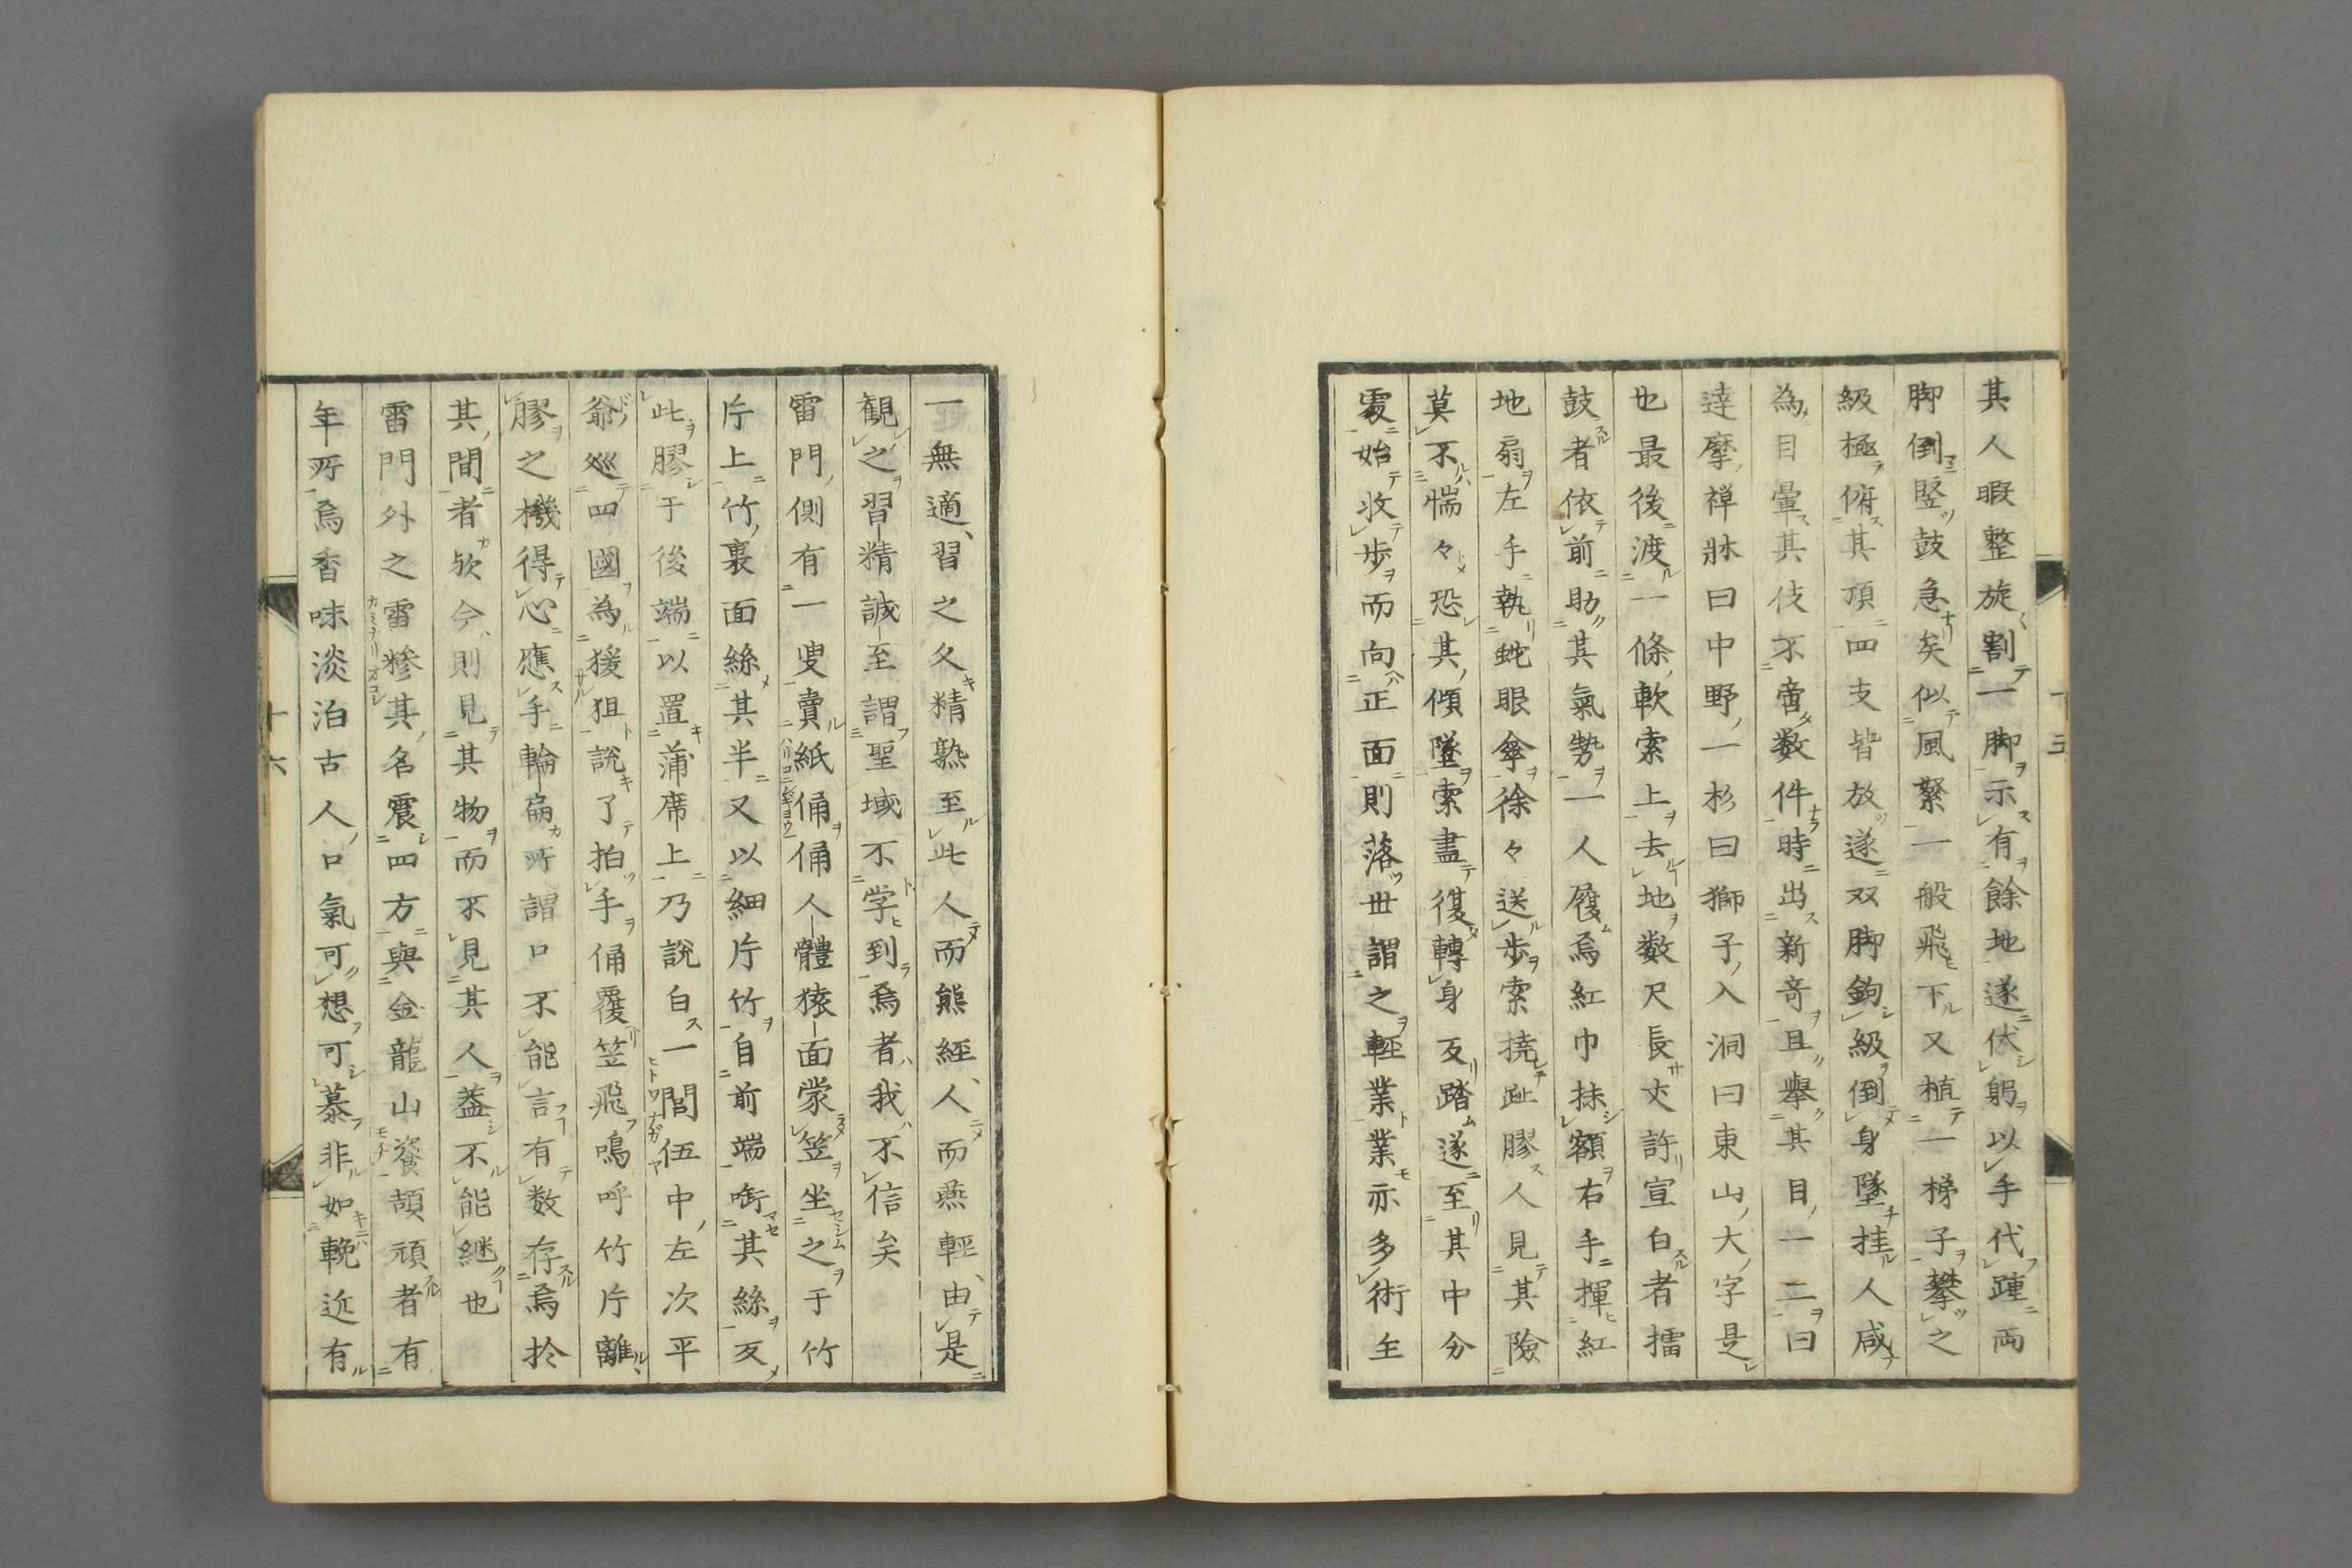 其人暇整旋割一脚示有餘地遂伏躬以手代踵両
脚倒竪鼓急矣似風繋一般飛下又植一梯子攀之
級極俯其頂四支皆放遂双脚鉤級倒身墜挂人咸
為目暈其伎不啻数件時出新竒且舉其目一二曰
達摩禅牀曰中野一杉曰獅子入洞曰東山大字是
也最後渡一條軟索上去地数尺長丈許宣白者擂
鼓者依前助其氣勢一人履焉紅巾抹額右手揮紅
地扇左手執蛇眼傘徐々送歩索撓趾膠人見其險
莫不惴々恐其傾墜索盡復轉身反踏遂至其中分
處始收歩而向正面則落世謂之輕業業亦多術至
十五
一無適習之久精熟至此人而熊經人而燕輕由是
観之習精誠至謂聖域不学到焉者我不信矣
雷門側有一叟賣紙俑俑人體猿面蒙笠坐之于竹
片上竹裏面絲其半又以細片竹自前端啣其絲反
此膠于後端以置蒲席上乃説白一間伍中左次平
爺巡四國為猨狙説了拍手俑覆笠飛鳴呼竹片離
膠之機得心應手輪扁所謂口不能言有数存焉於
其間者欤今則見其物而不見其人葢不能継也
雷門外之雷糝其名震四方與金龍山餈頡頏者有
年所焉香味淡泊古人口氣可想可慕非如輓近有
十六